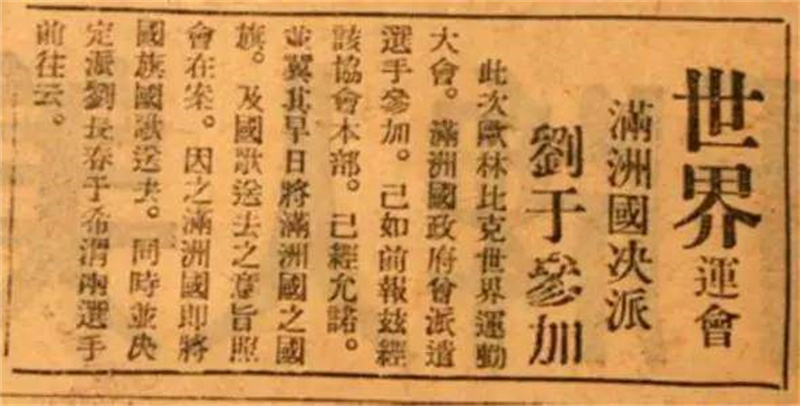 世界運會
滿洲國决派
劉于參加
此次歐林比克世界運動
大會。滿洲國政府曾派遣
選手參加。己如前報茲經
該協會本部。己經允諾。
並冀其早日將滿洲國之國
旗。及國歌送去之意旨照
會在案。因之滿洲國即將
國旗國歌送去。同時並决
定派劉長春于希渭兩選手
前往云。